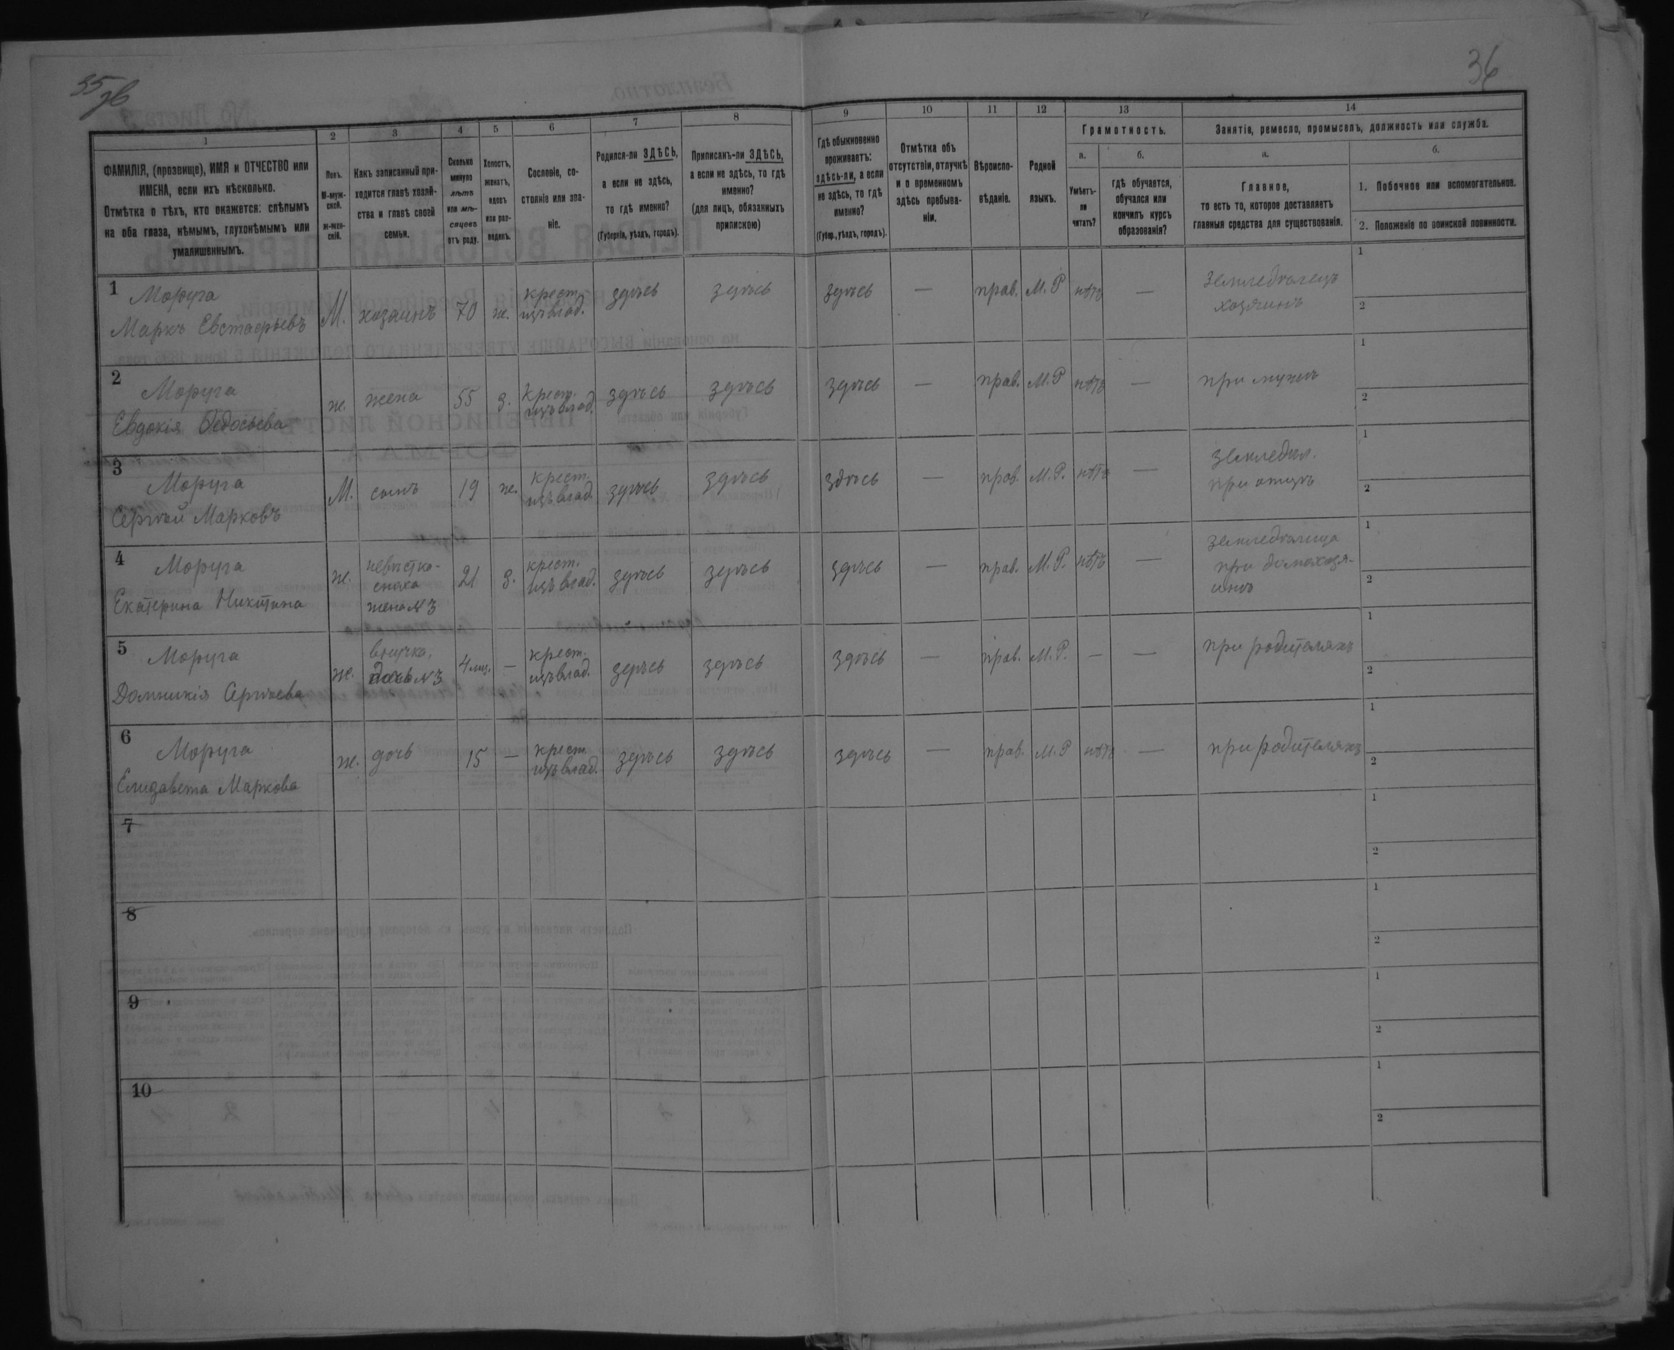 35об
36
1
2
3
4
5
6
7
8
9
10
11
12
13
14
ФАМИЛІЯ, (прозвище), ИМЯ и ОТЧЕСТВО или
ИМЕНА, если ихъ нѣсколько.
Отмѣтка о тѣхъ, кто окажется: слѣпымъ
на оба глаза, нѣмымъ, глухонѣмымъ или
умалишеннымъ.
Полъ.
М-муж-
ской.
ж-жен-
скій.
Какъ записанный при-
ходится главѣ хозяй-
ства и главѣ своей
семьи.
Сколько
минуло
лѣтъ
или мѣ-
сяцевъ
отъ роду.
Холостъ,
женатъ,
вдовъ
или раз-
веденъ.
Сословіе, со-
стояніе или зва-
ніе.
Родился-ли ЗДѢСЬ,
а если не здѣсь,
то гдѣ именно?
(Губернія, уѣздъ, городъ).
Приписанъ-ли ЗДѢСЬ,
а если не здѣсь, то гдѣ
именно?
(для лицъ, обязанныхъ
припискою)
Гдѣ обыкновенно
проживаетъ:
здѣсь-ли, а если
не здѣсь, то гдѣ
именно?
(Губер., уѣздъ, городъ).
Отмѣтка объ
отсутствіи, отлучкѣ
и о временномъ
здѣсь пребыва-
ніи.
Вѣроиспо-
вѣданіе.
Родной
языкъ.
Грамотность.
а.
б.
Умѣетъ-
ли
читать?
гдѣ обучается,
обучался или
кончилъ курсъ
образованія?
Занятіе, ремесло, промыселъ, должность или служба.
а.
б.
Главное,
то есть то, которое доставляетъ
главныя средства для существованія.
1. Побочное или вспомогательное.
2. Положеніе по воинской повинности.
1 Моруга
Маркъ Евстафьевъ
М. хозяинъ 70 ж. крест. изъ влад. здѣсь здѣсь здѣсь — прав. М.Р нѣтъ — Земледѣлецъ
хозяинъ
1
2
2 Моруга
Евдокія Федосѣева
ж. жена 55 з. крест. изъ влад. здѣсь здѣсь здѣсь — прав. М.Р нѣтъ — при мужѣ
1
2
3 Моруга
Сергѣй Марковъ
М. сынъ 19 ж. крест. изъ влад. здѣсь здѣсь здѣсь — прав. М.Р. нѣтъ — Земледѣл.
при отцѣ
1
2
4 Моруга
Екатерина Никитина
ж. невѣстка-
сноха
жена №3 21 з. крест. изъ влад. здѣсь здѣсь здѣсь — прав. М.Р. нѣтъ —
при домохозя-
инѣ
1
2
5 Моруга
Домникія Сергѣева
ж. внучка,
дочь №3 4 мц. — крест. изъ влад. здѣсь здѣсь здѣсь — прав. М.Р. — — при родителяхъ
1
2
6 Моруга
Елизавета Маркова
ж. дочь 15 — крест. изъ влад. здѣсь здѣсь здѣсь — прав. М.Р нѣтъ — при родителяхъ
1
2
7
1
2
8
1
2
9
1
2
10
1
2